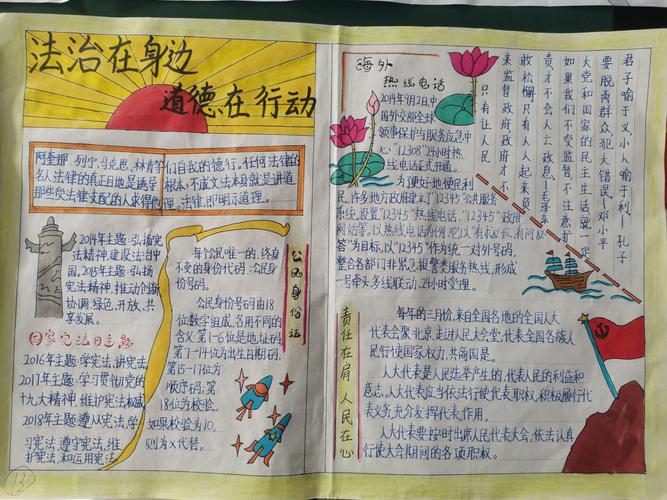 法治在身边
道德在行动
阿奎那、列宁、马克思、林肯等
们自我的德行。任何法律的
名人法律的真正目地是诱导
根本,不成文法本身就是讲道
那些受法律支配的人求得他
理。法律,即明示道理。
2014年主题:弘扬宪
法精神,建设法治中
国,2015年主题:弘扬
宪法精神,推动创新
协调,绿色,开放,共
享发展。
国家宪法日主题
2016年主题:学宪法,讲宪法
2017年主题:学习贯彻党的
十九大精神,维护宪法权威
2018年主题:遵从宪法,学
习宪法,遵守宪法,维
护宪法,和运用宪法
每个公民唯一的,终身
不变的身份代码:公民身
份号码。
公民身份号码由18
位数字组成,各用不同的
含义。第1-6位是地址码
第7-14位为出生日期码;
第15-17位为
顺序码;第
18位为校验。
如果校验为10,
则为X代替。
公民身份证
13
海外
热线电话
2014年9月2日中
国外交部全球
领事保护与服务应急中
心“12308”24小时热
线电话正式开通。
为了更好地便民利
民,许多地方政府建立了“12345”公共服务
系统,设置“12345”热线电话,“12345”政府
网站等。以热线电话为例,它以“有求必应,有问必
答”为目标,以“12345”作为统一对外号码。
整合各部门非紧急,报警类服务热线,形成
一号牵头多线联动,24小时受理。
君子喻于义,小人喻于利—孔子
要脱离群众,犯大错误—邓小平
大党和国家的民主生活就一定
如果我们不受监督不注意扩
责,才不会人亡政息—毛泽东
敢松懈,只有人人起来负
来监督政府政府才不
只有让人民
责任在肩 人民在心
每年的三月份,来自全国各地的全国人大
代表会聚北京,走进人民大会堂,代表全国各族人
民行使国家权力,共商国是。
人大代表是人民选举产生的,代表人民的利益和
意志。人大代表应当依法行使代表,职权,积极履行代
表义务,充分发挥代表作用。
人大代表要按时出席人民代表大会,依法认真
行使大会期间的各项职权。